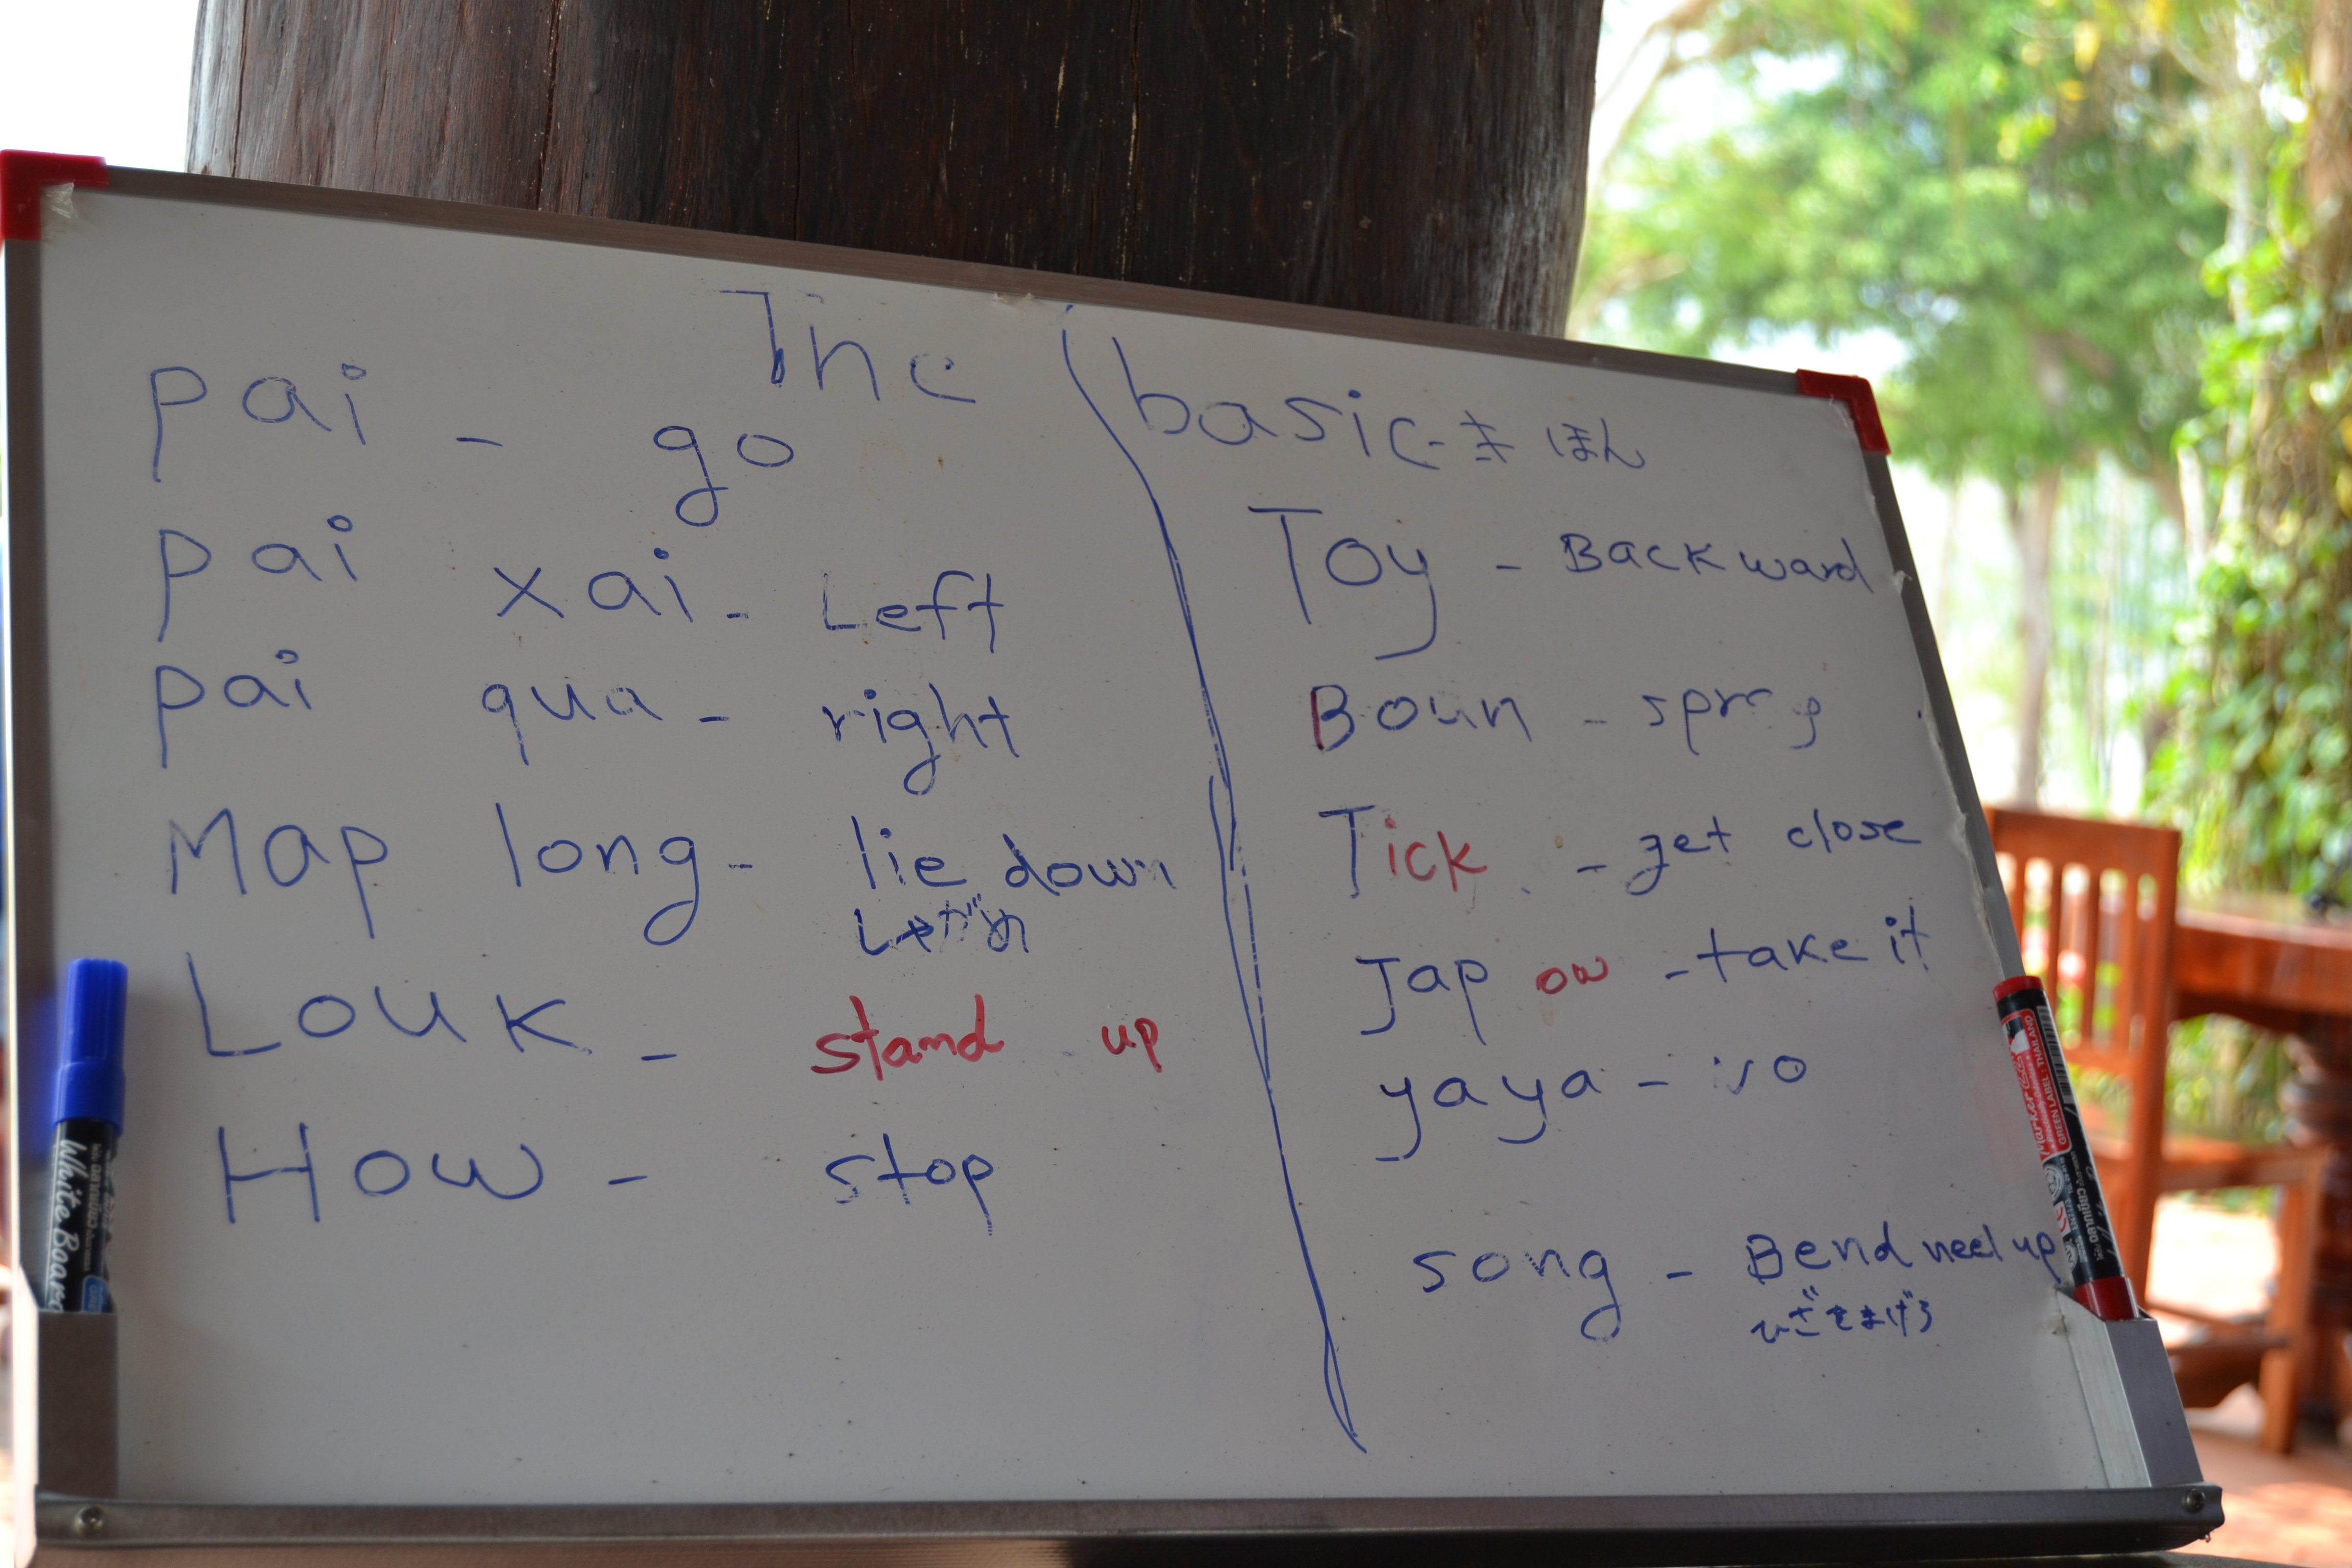 The basic - きほん
pai - go
pai xai - Left
pai qua - right
Map long - lie down
Louk - stand up
How - stop
Toy - Backward
Boun - spray
Tick - get close
Jap ow - take it
yaya - no
song - Bend neel up
ひざをまげろ
White Board
GREEN LABEL THAILAND